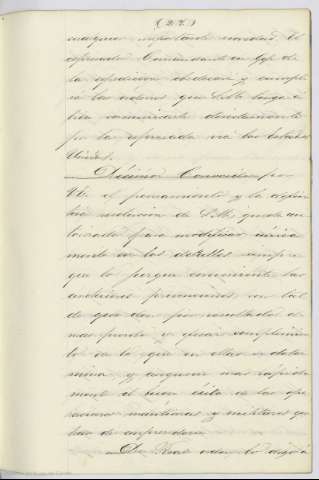 (22)
cualquier importante novedad. El
espresado Comandante en Gefe de
la espedicion obedecerá y cumpli-
rá las órdenes que S. M. tenga á
bien comunicarle directamente
por la espresada via los Estados
Unidos.
Décimo. Conocido por
V. E. el pensamiento y la
intencion de S. M. queda au-
torizado para modificar única-
mente en los detalles siempre
que lo juzgue conveniente las
anteriores prevenciones con tal
de que den por resultado el
mas pronto y eficaz cumplimien-
to de lo que en ellas se deter-
mina y aseguren mas
mente el buen éxito de las ope-
raciones marítimas y militares que
han de emprenderse.
De Real orden lo digo á